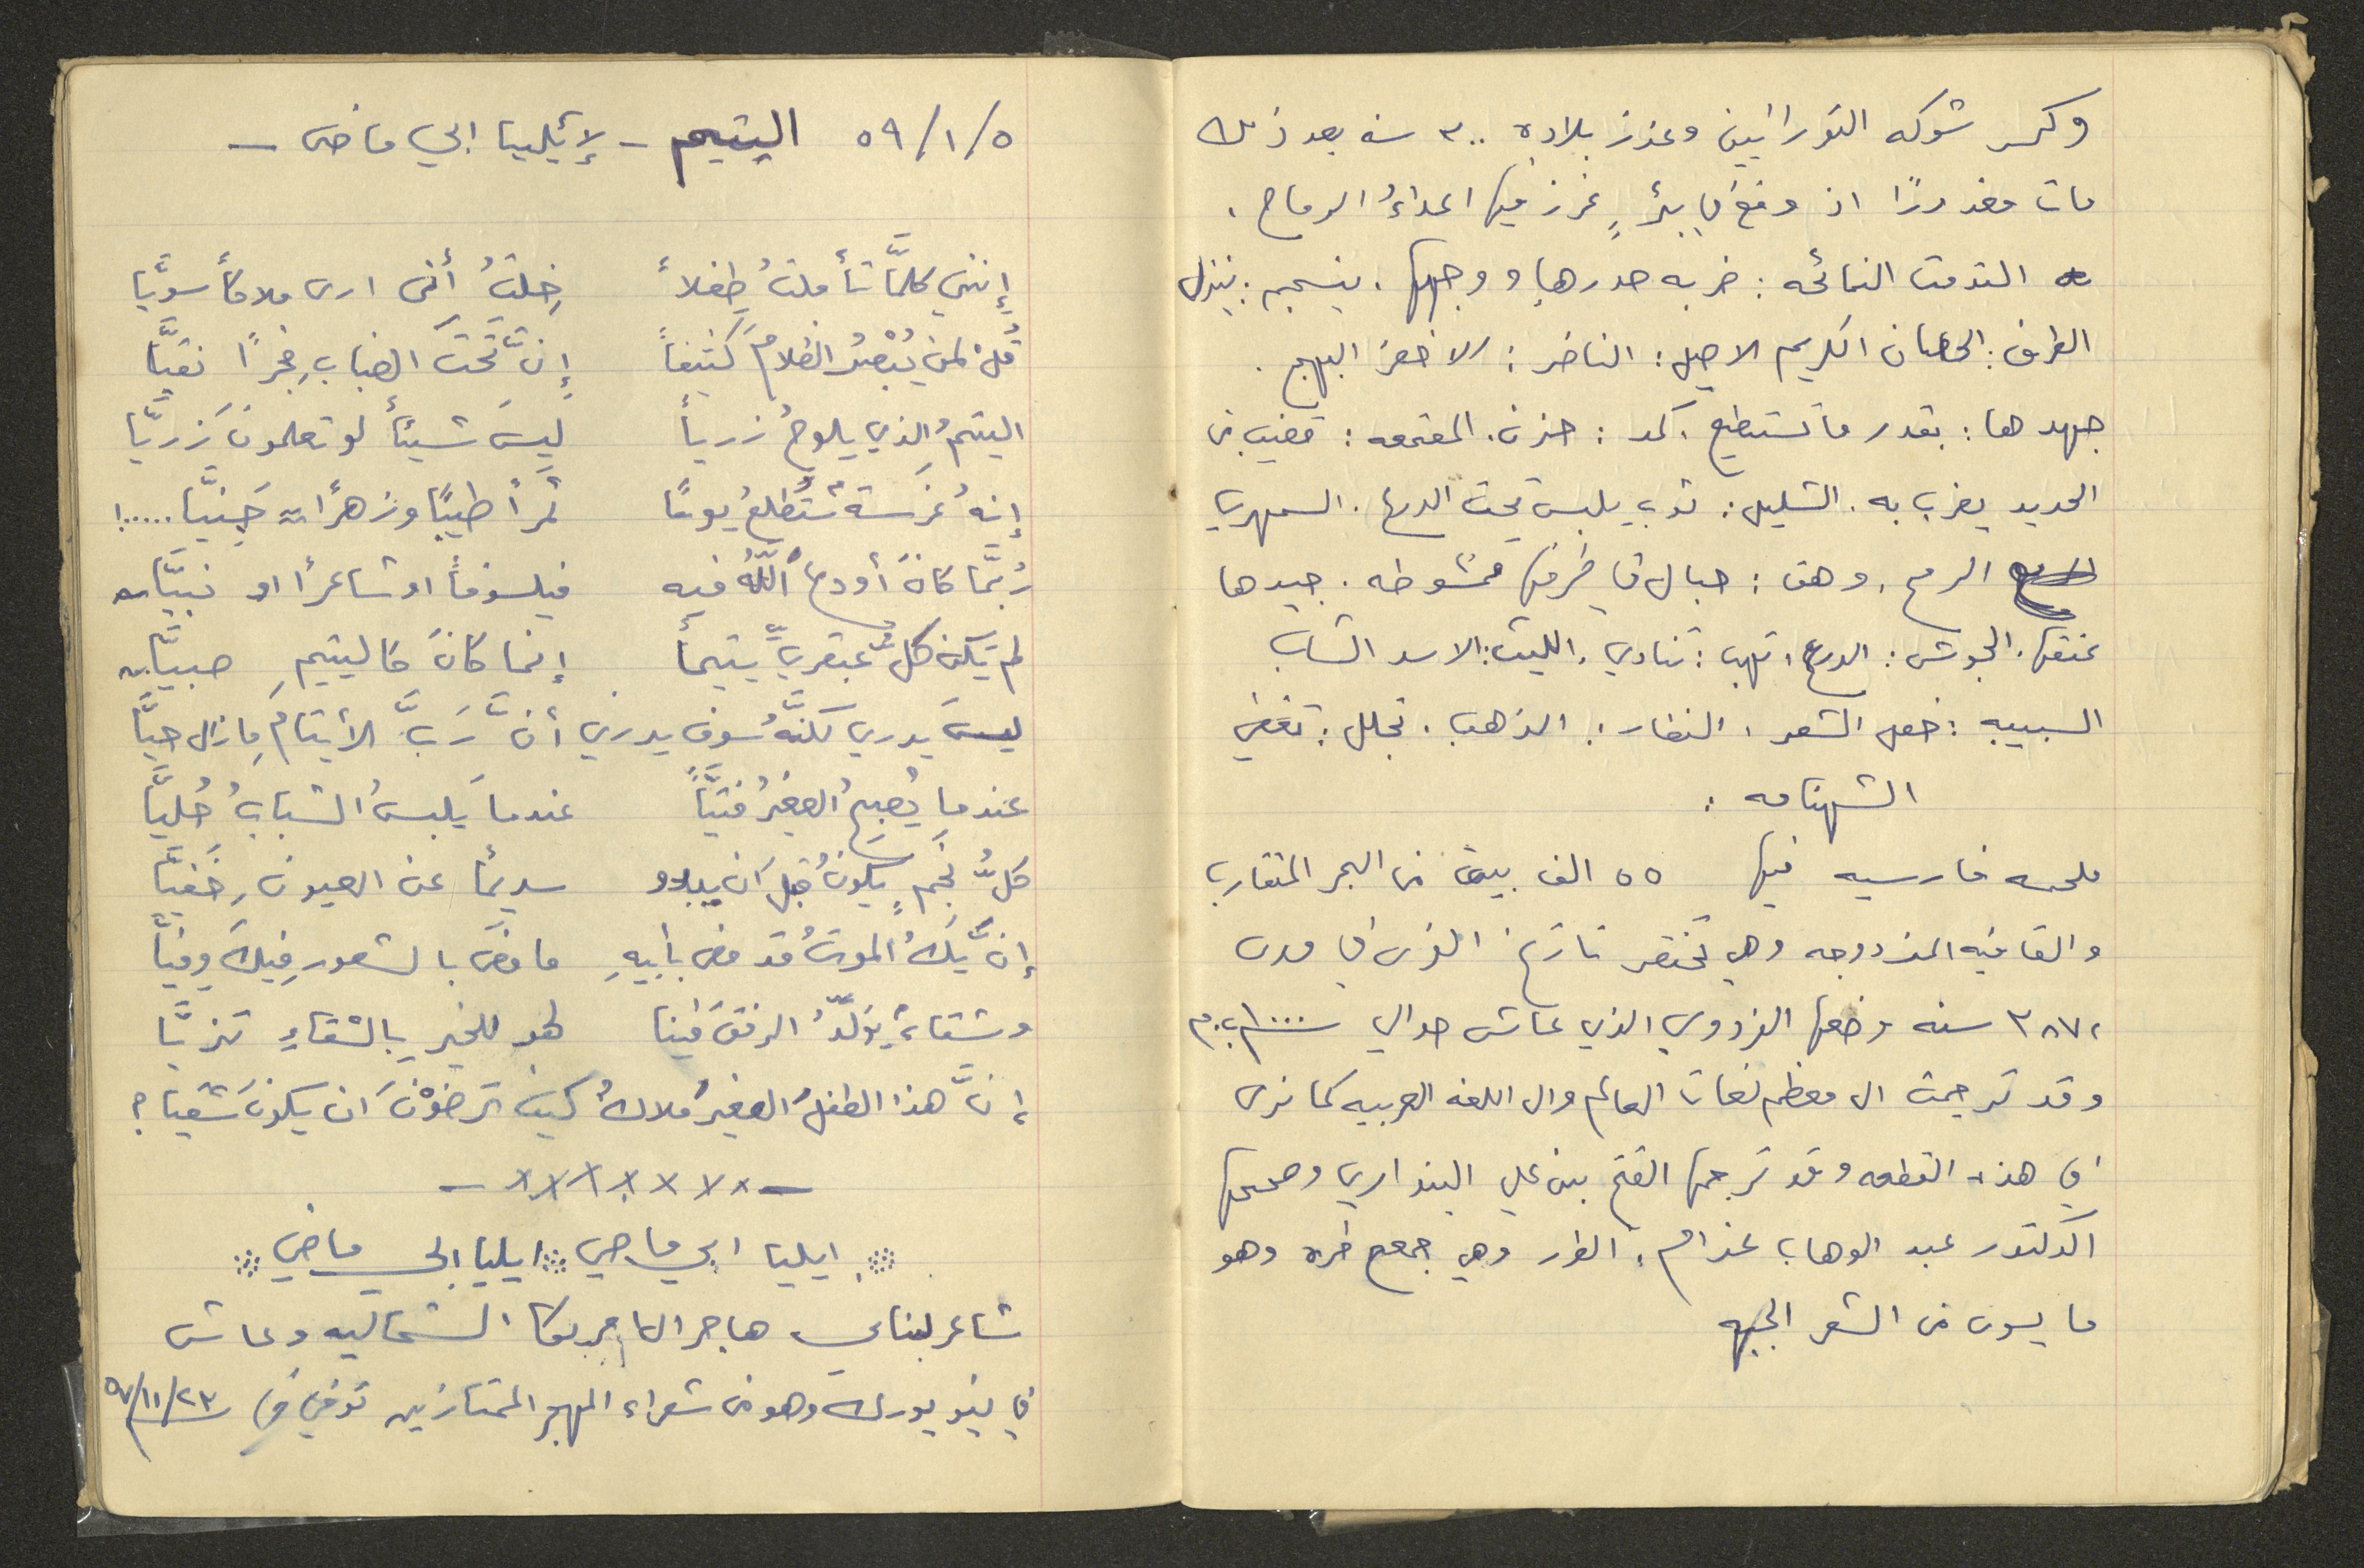 وكسر شوكه التورانيين وعزز بلاده ٣٠٠ سنه بعد ذلك
مات مغدورًا اذ وقع في بئرٍ غرز فيها اعداءُ الرماح.
التدمت النائحه: ضربه صدرها و وجهها. ينسجم: ينزل
الطرف: الحصان الكريم الاصيل: الناضر: الاخضر البهيج.
جهدها: بقدر ما تستطيع. كمد: حزن. المقمعه: قضيب من
الحديد يضرب به. الشليل: ثوب يلبس تحت الدرع. السمهري
الرمح. وهق: حبال في طرفها مشوطه. جيدها
عنقها. الجوشن: الدرع. تهيب: تنادي. الليث: الاسد الشاب
السبيبه: خصل الشعر. النضار: الذهب. تجلل: تغطي
الشهنامه:
ملحمه فارسيه فيها ٥٥ الف بيت من البحر المتقارب
والقافيه المزدوجه وهي تختصر تاريخ الفرس في مدى
٣٨٧٤ سنه وضعها الفردوسي الذي عاش حوالي ١٠٠٠ ب.م
وقد ترجمت الى معظم لغات العالم والى اللغه العربيه كما نرى
في هذه القطعه وقد ترجمها الفتح بن علي البنداري وصححها
الدكتور عبد الوهاب عزام. الطرر وهي جمع طره وهو
ما يسوى من الشعر الجبهه
٥٩/١/٥ اليتيم - لإيليا ابي ماضي -
إنني كلمَّا تأملتُ طِفلاً خِلتُ أنى ارى ملاكاً سويَّا
قُلْ لمن يُبْصِرُ الظلامَ كثيفاً إنَّ تحتَ الضبابِ فجرًا نقيَّا
اليتيمُ الذي يلوحُ زرياً ليسَ شيئاً لو تعلمونَ زريَّا
إنهُ غرسة سَتُطلعُ يومًا ثَمَراً طيبًا وزهرًا جَنِيَّا.....!
رُبمَّا كانَ أودعَ اللّهُ فيه فيلسوفاً او شاعراً او نبيَّا
لم يَكن كلُّ عبقريٍّ يتيماً إنما كانَ كاليتيمِ صبيَّا
ليسَ يدري لكنَّهُ سوف يدري أنَّ رَبَّ الأيتامِ مازال حيَّا
عندما يُصبحُ الصغيرُ فتيًّا عندما يَلبسُ الشبابُ حُليَّا
كلُّ نجمٍ يكونُ قبل ان يبدو سديمًا عن العيونِ خَفيَّا
إن يَكُ الموتُ قد مضى بأبيهِ ما مضى بالشعور فِيكَ وفيَّا
وشقاءٌ يولّدُ الرفقَ فينا لهو للخير بالشقاءِ تزيَّا
إنَّ هذا الطفلُ الصغيرُ ملاكُ كيف ترضوْنَ ان يكونَ شقيا؟
- ×××××××-
ايليا ابي ماضي ايليا ابي ماضي
شاعر لبناني هاجر الى امريكا الشماليه وعاش
في نيو يورك وهو من شعراء المهجر الممتازين توفي في ٥٧/١١/٢٣